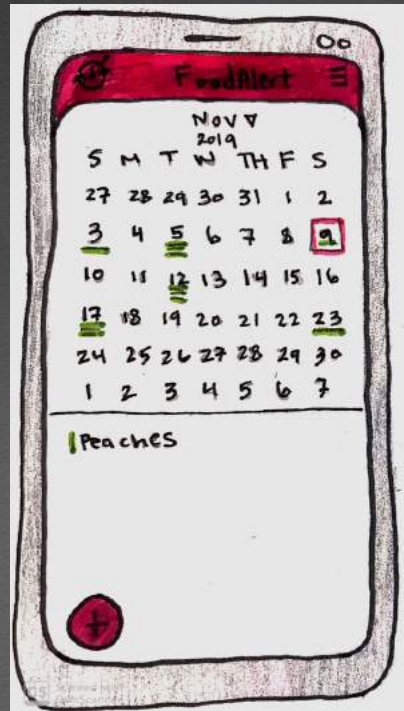 FoodAlert
NOV
2019
S M T W TH F S
27 28 29 30 31 1 2
3 4 5 6 7 8 9
10 11 12 13 14 15 16
17 18 19 20 21 22 23
24 25 26 27 28 29 30
1 2 3 4 5 6 7
Peaches
+
CS